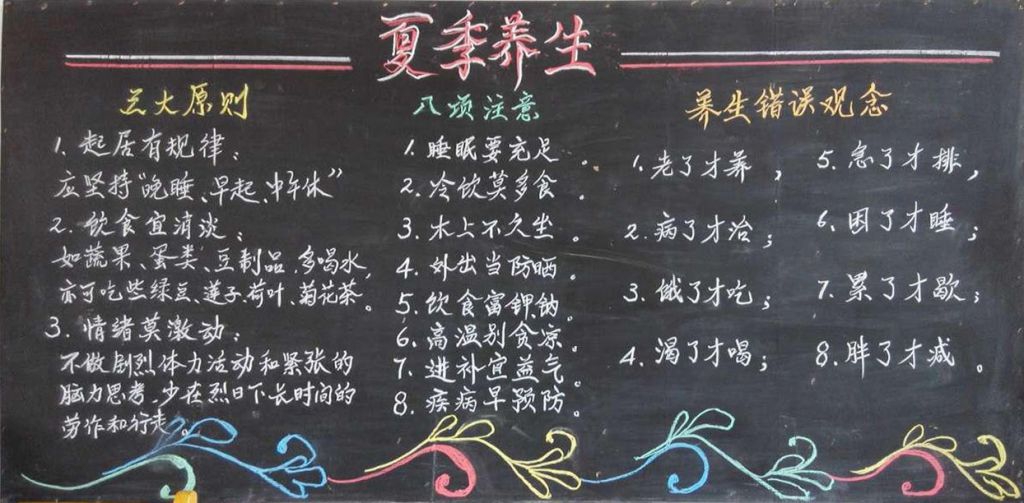 夏季养生
三大原则
1. 起居有规律：
应坚持“晚睡、早起、中午休”
2. 饮食宜消淡：
如蔬果、蛋类、豆制品，多喝水，
亦可吃些绿豆、莲子、荷叶、菊花茶。
3. 情绪莫激动：
不做剧烈体力活动和紧张的
脑力思考，少在烈日下长时间的
劳作和行走。
八项注意
1. 睡眠要充足。
2. 冷饮莫多食。
3. 木上不久坐。
4. 外出当防晒。
5. 饮食富钾钠。
6. 高温别贪凉。
7. 进补宜益气。
8. 疾病早预防。
养生错误观念
1. 老了才养，
2. 病了才治；
3. 饿了才吃；
4. 渴了才喝；
5. 急了才排，
6. 困了才睡；
7. 累了才歇；
8. 胖了才减。